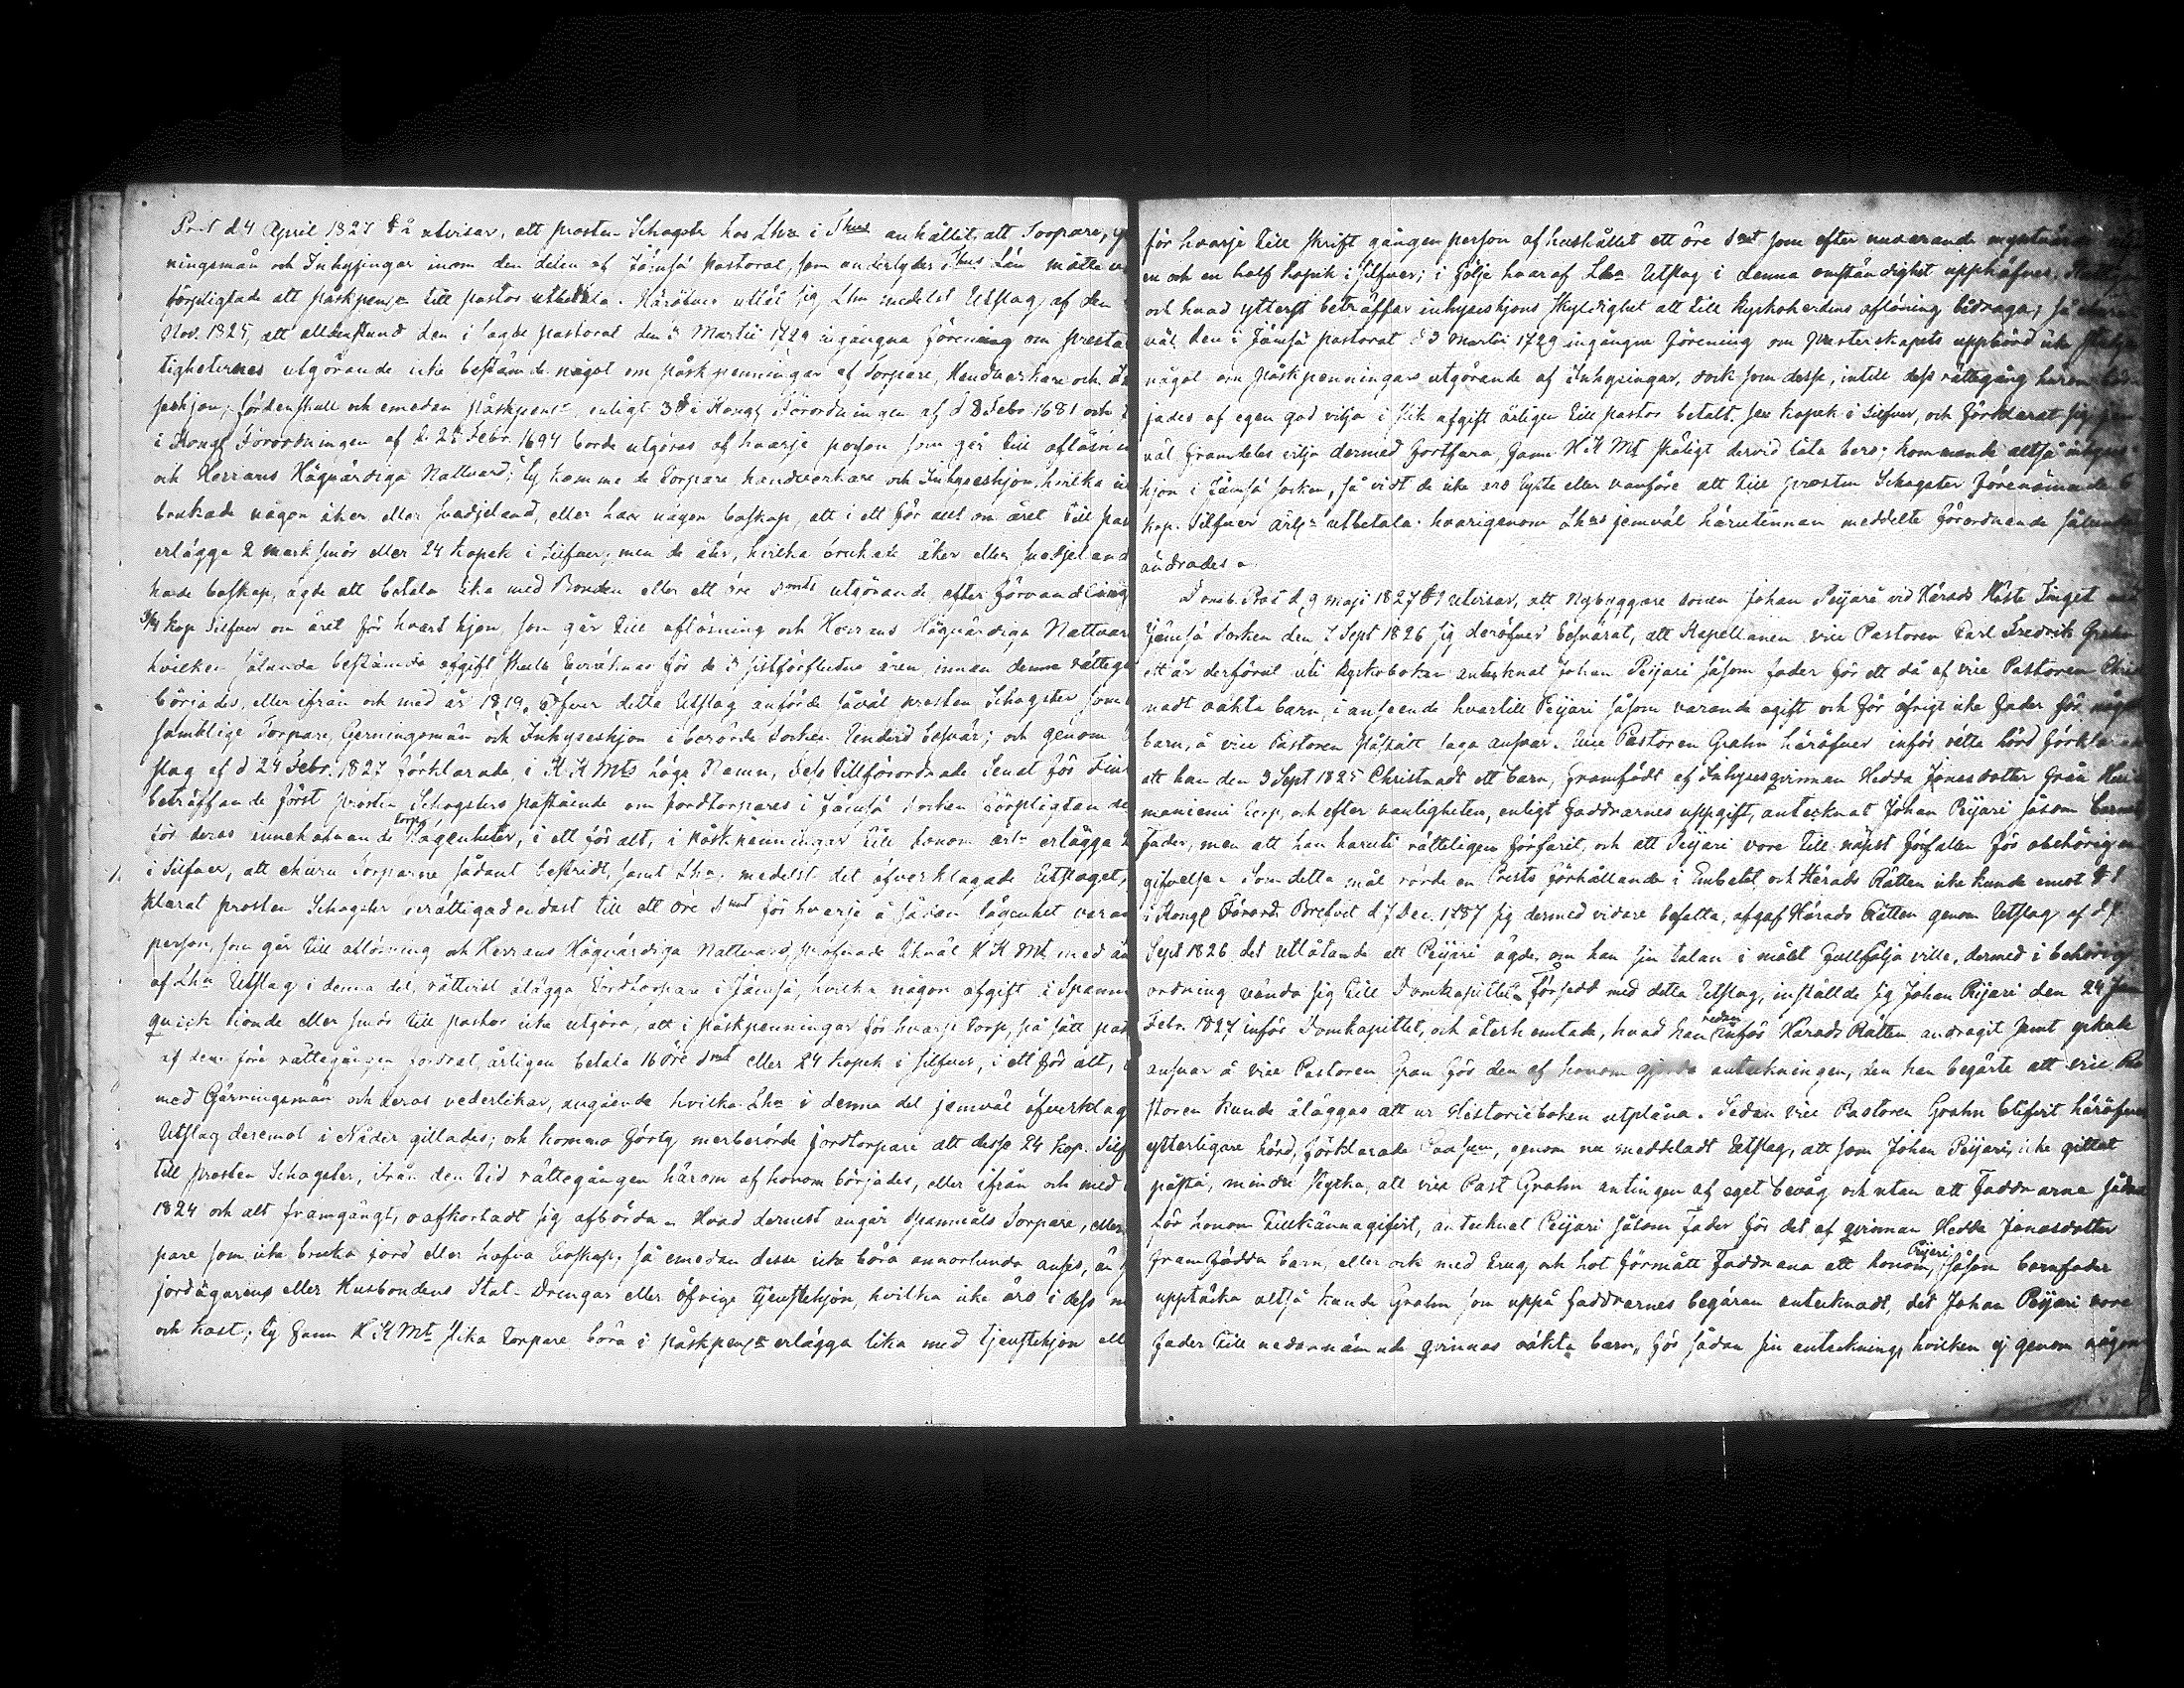 Prot d 4 April 1827 § 2 utvisar, att prosten Schogster hos Lhn i Thus anhållit, att Torpare,
ningsmän och Inhysingar inom den delen af Jämsä pastorat, som underlyder Thus Län måtte
förpligtade att påskpengr till pastor utbetala. Häröfver utlät sig Lhn medelst Utslag af den
Nov. 1825, att alldenstund den i sagde pastorat den 3 Martii 1729 ingångna förening om presta
tigheternes utgörande icke bestämde något om påskpenningar af Torpare, Handtverkare och
seshjon; fördenskull och emedan påskpengr enligt 3 § i Kongl Förordningen af d 8 Febr 1681 och
i Kongl Förordningen af d. 28 Febr. 1694 borde utgöras af hvarje person som går till aflösnin
och Herrans Högvärdiga Nattvard; Ty komme de Torpare handtverkare och Inhyseshjon, hvilka
brukade någon åker eller svedjeland, eller hav någon boskap, att i ett för allt om året till pas
erlägga 2 mark smör eller 24 kopek i Silfver; men de åter, hvilka brukade åker eller svedjeland
hade boskap, ägde att betala lika med Bonden eller ett öre smts utgörande efter förvandling
3/4 kop Silfver om året för hvart hjon, som går till aflösning och Herrans Högvärdiga Nattvard
hvilken sålunda bestämda afgift skulle beräknas för de 3 sistförflutna åren, innan denna rätteg
börjades, eller ifrån och med år 1819. Öfver detta Utslag anförde såväl prosten Schogster som
samtlige Torpare, Gerningsmän och Inhyseshjon i berörde Socken underd besvär; och genom
slag af d 24 Febr. 1827 förklarade, i K K Mts höga Namn, Dess Tillförordnade Senat för Fin
beträffande först prosten Schogsters påstående om jordtorpares i Jämsä socken förpligtan de
för deras innehafvande Torp lägenheter, i ett för alt, i påskpenningar till honom årl erlägga
i Silfver, att ehuru Torparne sådant bestridt, samt Lhn, medelst det öfverklagade Utslaget,
klarat prosten Schogster berättigad endast till ett öre smt för hvarje å sådan lägenhet varan
person, som går till aflösning och Herrans Högvärdiga Nattvard, pröfvade likväl K K Mt, med
af Lhn Utslag i denna del, rättvist ålägga Jordtorpare i Jämsä, hvilka någon afgift i Spanm
qvick tionde eller smör till pastor icke utgöra, att i påskpenningar för hvarje torp, på sätt pas
af dem före rättegången fordrat, årligen betala 16 öre smt eller 24 kopek i Silfver, i ett för alt,
med Gärningsmän och deras vederlikar, angående hvilka Lhn i denna del jemväl öfverklag
Utslag deremot i Nåder gillades; och komma förty merberörde jordtorpare att dessa 24 kop. Silf
till prosten Schogster, ifrån den tid rättegången härom af honom börjades, eller ifrån och med
1824 och alt framgångt, oafkortadt sig afbörda. Hvad dernest angår Spanmåls Torpare, eller
pare som icke bruka jord eller hafva boskap; så emedan desse icke böra annorlunda anses, än
jordägarens eller Husbondens Stat-Drengar eller öfvrige tjenstehjon, hvilka icke äro i dess
och kost; Ty fann K K Mt slika Torpare böra i påskpengr erlägga lika med tjenstehjon ell
för hvarje till skrift gången person af hushållet ett öre smt som efter nuvarande myntvärde
en och en half kopek i Silfver; i följe hvaraf Lhn Utslag i denna omständighet upphäfves.
och hvad ytterst beträffar inhyseshjons skyldighet att till kyrkoherdens aflöning bidraga; så ehuru
väl den i Jämsä pastorat d 3 Martii 1729 ingångne förening om Presterskapets uppbörd icke
något om påskpenningars utgörande af Inhysingar, dock som desse, intill dess rättegång härom bör
jades af egen god vilja i slik afgift årligen till pastor betalt sex kopek i Silfver, och förklarat sig
väl framdeles vilja dermed fortfara, fann K K Mt skäligt dervid låta bero; kommande altså inhyses
hjon i Jämsä socken, så vidt de icke äro lytte eller vanföre att till prosten Schogster förenämnde 6
kop. Silfver årlgn utbetala. hvarigenom Lhns jemväl härutinnan meddelte förordnande sålunda
ändrades.
Domk. Prot d 9 maji 1827 § 1 utvisar, att Nybyggare sonen Johan Peijari vid Härads Höste Tinget
Jämsä Socken den 7 Sept 1826 sig deröfver besvärat, att Kapellanen vice Pastoren Carl Fredrik Grahn
ett år derförut uti Kyrkoboken antecknat Johan Peijari såsom fader för ett då af vice Pastoren Chri
nadt oäkta barn, i anseende hvartill Peijari såsom varande ogift och för öfrigt icke fader för någo
barn, å vice Pastoren påstått laga ansvar. Vice Pastoren Grahn häröfver inför rätta hörd förklarade
att han den 3 Sept 1825 Christnadt ett barn, framfödt af Inhysesqvinnan Hedda Jonasdotter från
maniemi torp, och efter vanligheten, enligt Faddrarnes uppgift, antecknat Johan Peijari såsom barnets
Fader, men att han häruti rätteligen förfarit, och att Peijari vore till näpst förfallen för obehörigen
gifvelse. Som detta mål rörde en Prests förhållande i Embetet och Härads Rätten icke kunde emot § 8
i Kongl Förord. Brefvet d 7 Dec. 1787 sig dermed vidare befatta, afgaf Härads Rätten genom Utslag af d. 7
Sept 1826 det utlåtande att Peijari ägde, om han sin talan i målet fullfölja ville, dermed i behörig
ordning vända sig till Domkapitlet. Försedd med detta Utslag, inställde sig Johan Peijari den 24
Febr. 1827 inför Domkapitlet, och återhemtade, hvad han redan inför Härads Rätten andragit samt yrkade
ansvar å vice Pastoren Gran för den af honom gjorda anteckningen, den han begärte att vice Pa
storen kunde åläggas att ur Historiéboken utplåna. Sedan vice Pastoren Grahn blifvit häröfver
ytterligare hörd, förklarade Consum, genom nu meddeladt Utslag, att som Johan Peijari, icke gittat
påstå, mindre styrka, att vice Past Grahn antingen af eget bevåg och utan att Faddrarne sådan
för honom tillkännagifvit, antecknat Peijari såsom Fader för det af qvinnan Hedda Jonasdotter
framfödda barn, eller ock med trug och hot förmått Faddrarna att honom, Peijari, såsom barnfader
upptäcka altså kunde Grahn som uppå Faddrarnes begäran antecknadt, det Johan Peijari vore
fader till nedannämnde qvinnas oäkta barn, för sådan sin anteckning, hvilken ej genom någon